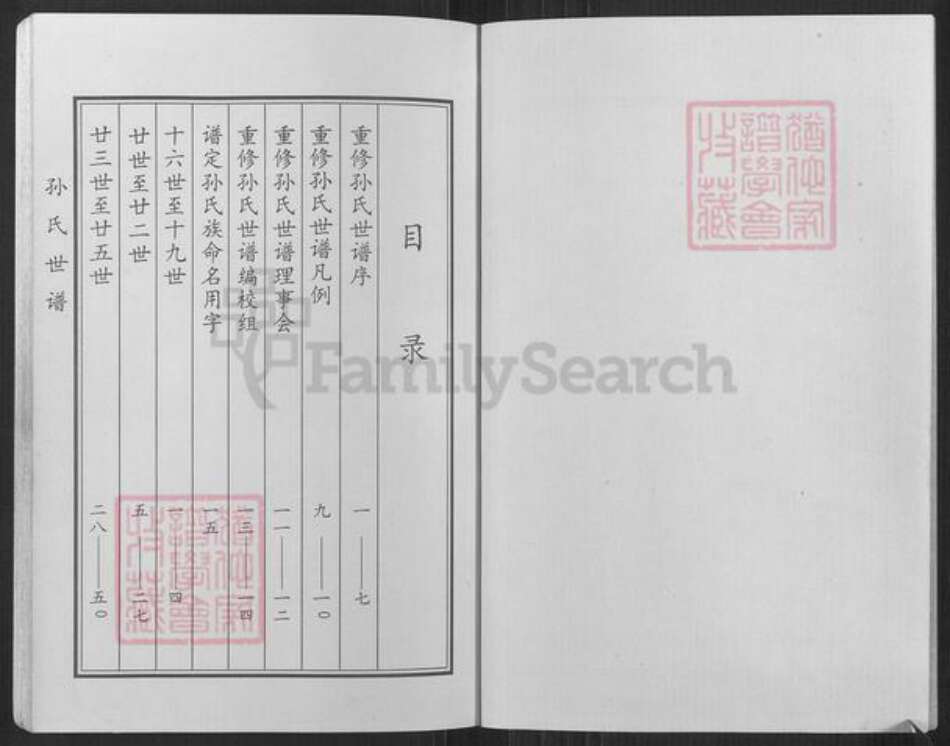 目录
重修孙氏世谱序 一——七
重修孙氏世谱凡例 九——一〇
重修孙氏世谱理事会 一一——一二
重修孙氏世谱编校组 一三——一四
谱定孙氏族命名用字 一五
十六世至十九世 一——四
廿世至廿二世 五——二七
廿三世至廿五世 二八——五〇
孙氏世谱
FamilySearch